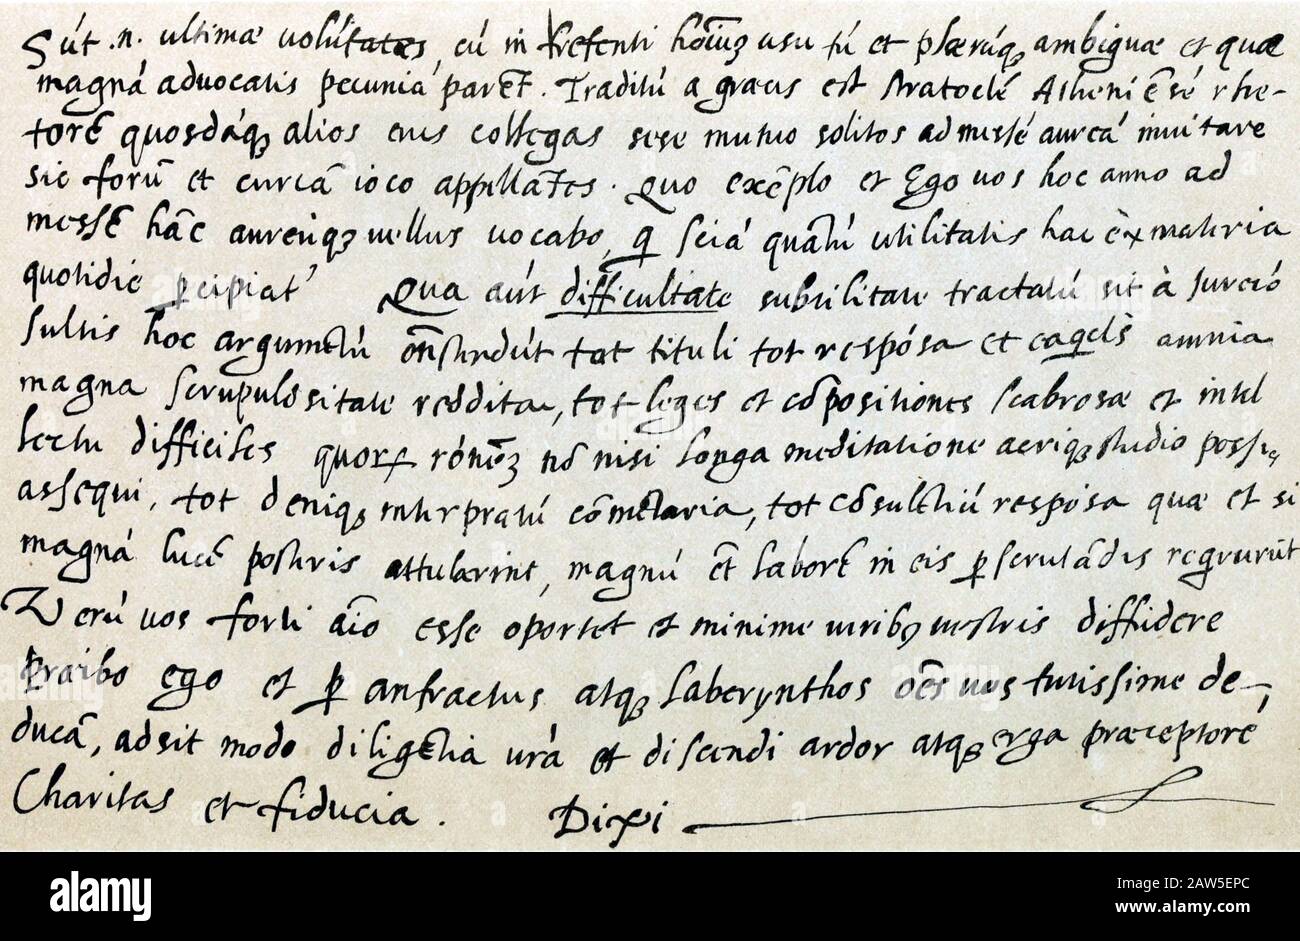 Sút .n. ultimæ volútates, cú in præsenti homiuʒ usu tú et plærúqʒ ambiguæ et quæ
magná advocatis pecuniá parēt. Traditú a græcis est Stratoclé Atheniēsé rhe-
torē quosdáqʒ alios eius collegas sese mutuo solitos ad messé aureá invitare
sic forū et curiā ioco appellātes. Quo exēplo et Ego vos hoc anno ad
messē hāc aureūqʒ vellus vocabo, q sciá quātú utilitatis hac èx materia
quotidie pcipiat' Qua aút difficultate subtilitate tractatú sit à Jurecó
sultis hoc argumētú ostendút tot tituli tot respósa et eaqʒ omnia
magna scrupulositate reddita, tot leges et cōpositiones scabrosæ et intel
lectu difficiles quorʒ rónem nō nisi longa meditatione acriqʒ studio possu
assequi, tot deniqʒ interpretú cōmētaria, tot cōsultorú respósa quæ et si
magná lucē posteris attulerint, magnú et laborē in eis pscrutādis reqrunt
Verú vos forti aīo esse oportet et minime viribʒ vestris diffidere
Præibo ego et p anfractus atqʒ laberynthos oēs vos tutissime de-
ducā, adsit modo diligētia vrá et discendi ardor atqʒ erga præceptoré
Charitas et fiducia. Dixi
alamy
Image ID: 2AW5EPC
www.alamy.com